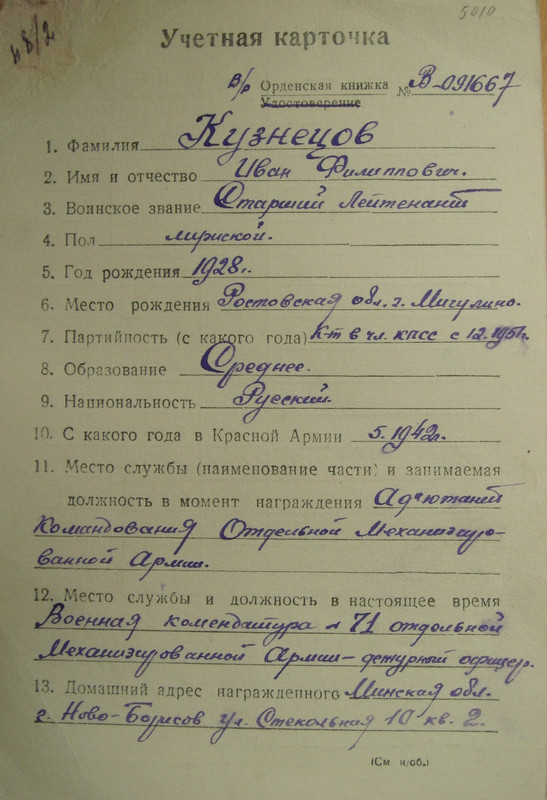 5010
48/2
Учетная карточка
в/р Орденская книжка № В-091667
Удостоверение
1. Фамилия Кузнецов
2. Имя и отчество Иван Филиппович.
3. Воинское звание Старший Лейтенант
4. Пол мужской.
5. Год рождения 1928г.
6. Место рождения Ростовская обл. г. Мигулино.
7. Партийность (с какого года) К-т в чл. КПСС с 12.1951г.
8. Образование Среднее.
9. Национальность Русский.
10. С какого года в Красной Армии 5.1942г.
11. Место службы (наименование части) и занимаемая
должность в момент награждения Адъютант
Командования Отдельной Механизиро-
ванной Армии.
12. Место службы и должность в настоящее время
Военная комендатура 71 отдельной
Механизированной Армии – дежурный офицер.
13. Домашний адрес награжденного Минская обл.
г. Ново-Борисов ул. Стекольная 10 кв. 2.
(См. н/об.)